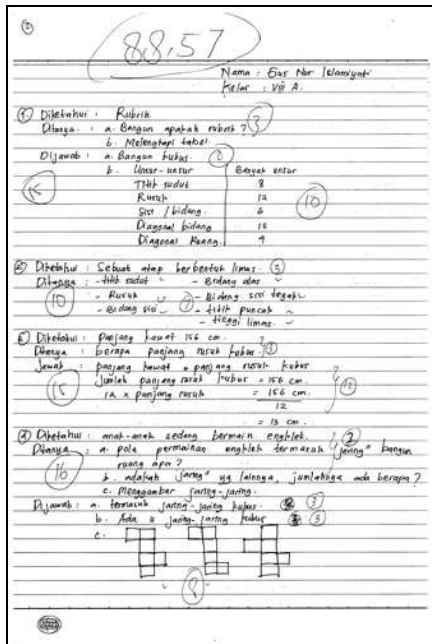 2
88,57
Nama : Eus Nur Islamiyati
Kelas : VIII A.
1. Diketahui : Rubrik
Ditanya : a. Bangun apakah rubrik ? 3
b. Melengkapi tabel.
Dijawab : a. Bangun kubus.
b. Unsur-unsur Banyak unsur
15 Titik sudut 8
Rusuk 12 10
Sisi / bidang. 6
Diagonal bidang 12
Diagonal Ruang. 4
2. Diketahui : Sebuah atap berbentuk limas. 3
Ditanya : - titik sudut - Bidang alas
10 - Rusuk 7 - Bidang sisi tegak
- Bidang sisi - titik puncak
- tinggi limas.
Diketahui : Panjang kawat 156 cm.
Ditanya : berapa panjang rusuk kubus.
Jawab : panjang kawat = panjang rusuk kubus
15 Jumlah panjang rusuk kubus = 156 cm.
12 x panjang rusuk = 156 cm.
12
= 13 cm.
Diketahui : anak-anak sedang bermain englek. 2
Ditanya : a. pola permainan englek termasuk jaring" bangun
16 ruang apa ?
b. adakah jaring" yg lainnya, jumlahnya ada berapa ?
c. Menggambar jaring-jaring.
Dijawab : a. termasuk jaring-jaring kubus. 3
b. Ada 11 jaring-jaring kubus 3
c.
8